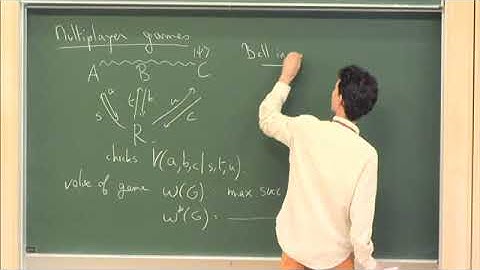 Multiplayer games
|ψ⟩
A B C
s a t b u c
R
checks V(a,b,c|s,t,u)
value of game ω(G) max succ
ω*(G) =
Bell in